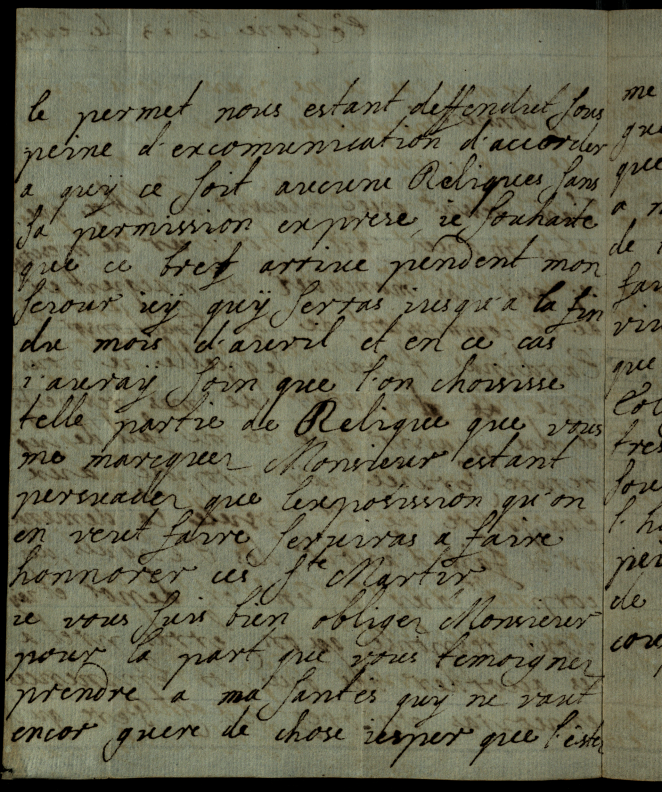 le permet nous estant deffendut sous
peine d'excomunication d'accorder
a quÿ ce soit aucune Reliques sans
sa permission exprese, ie souhaite
que ce bref arriue pendent mon
seiour icÿ quÿ serras iusqu'a la fin
du mois d'auril et en ce cas
i'aurraÿ soin que l'on choisisse
telle partie de Relique que vous
me marquer Monsieur estant
persuader que l'exposission qu'on
en veut faire seruiras a faire
honnorer ces Ste Martir
ie vous suis bien obliger Monsieur
pour la part que vous temoigner
prendre a ma santés quÿ ne vaut
encor guere de chose iesper que l'estez
me
que
a
de
que
tres
l'
de